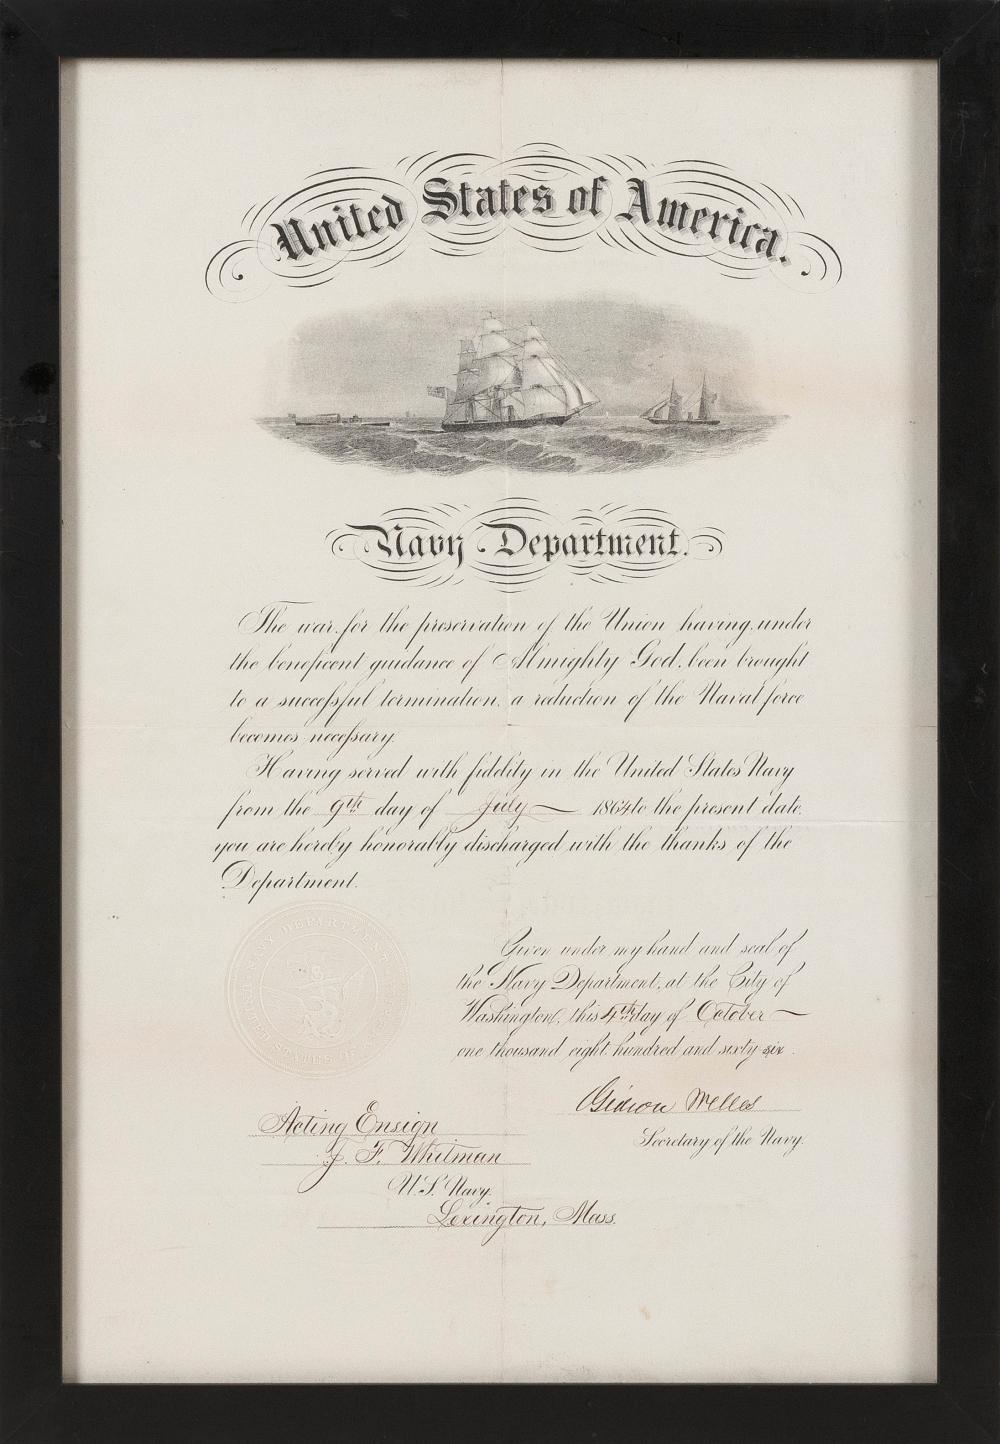 United States of America.
Navy Department.
The war for the preservation of the Union having, under
the beneficent guidance of Almighty God, been brought
to a successful termination, a reduction of the Naval force
becomes necessary.
Having served with fidelity in the United States Navy
from the 9th day of July 1864 to the present date,
you are hereby honorably discharged with the thanks of the
Department.
NAVY DEPARTMENT
UNITED STATES
Given under my hand and seal of
the Navy Department, at the City of
Washington, this 4th day of October
one thousand eight hundred and sixty six.
Gideon Welles
Secretary of the Navy.
Acting Ensign
J. F. Whitman
U.S. Navy.
Lexington, Mass.